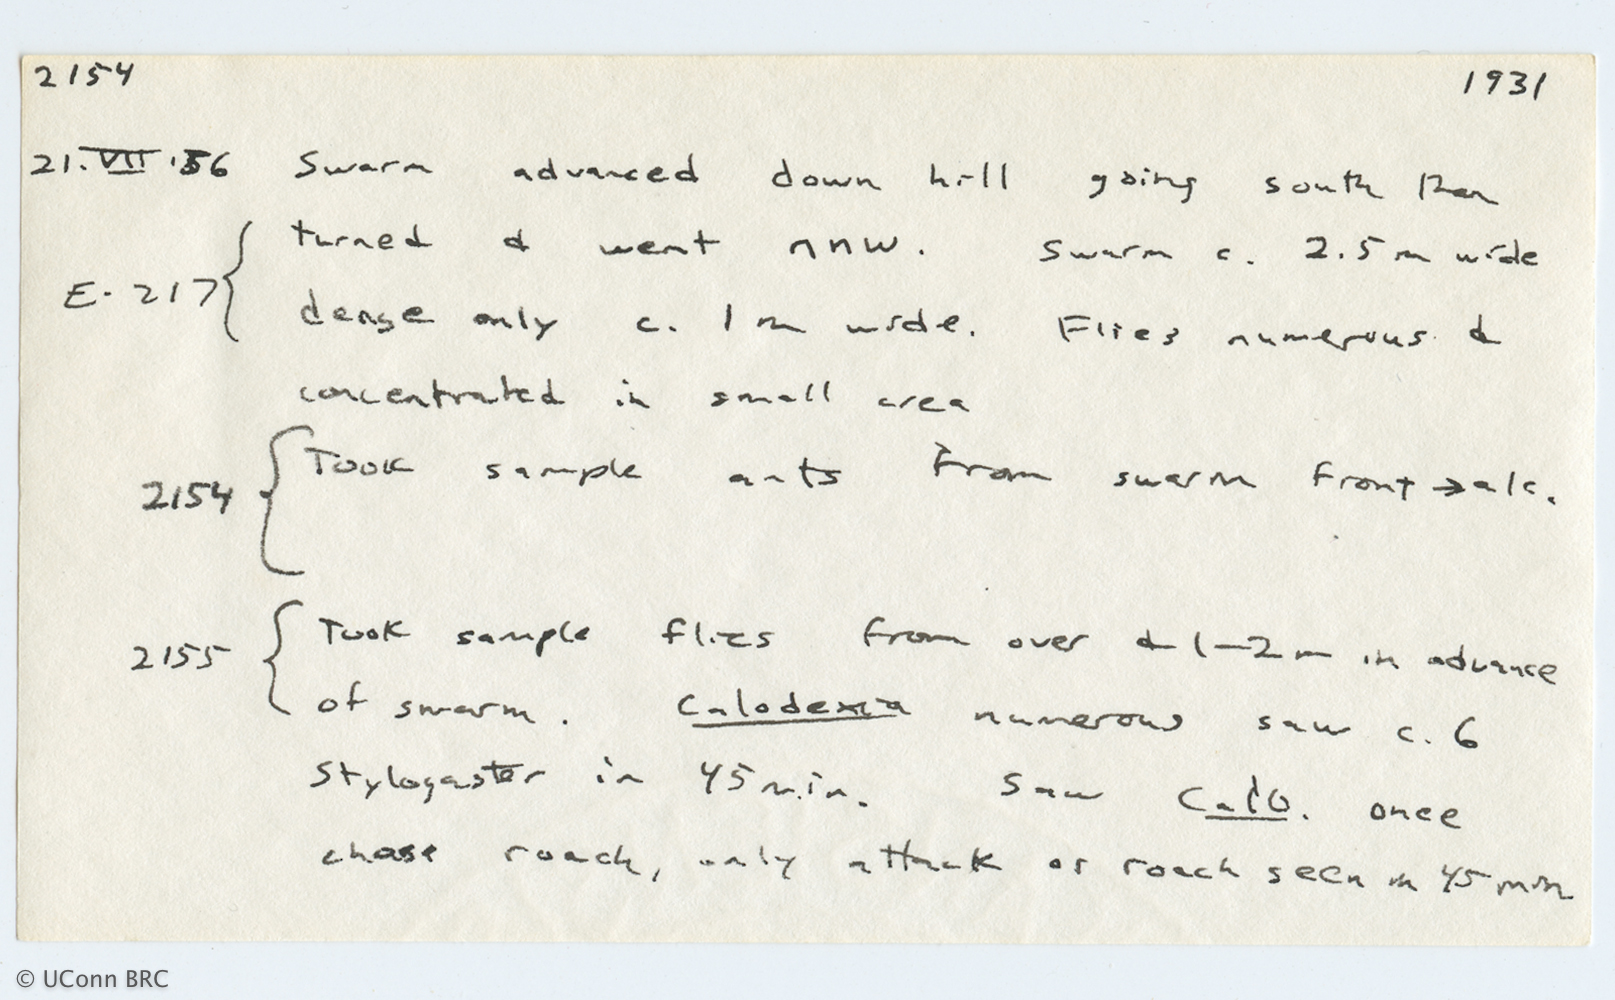 2154 1931
21.VII.'56 Swarm advanced down hill going south then
turned & went nnw. Swarm c. 2.5 m wide
E-217 dense only c. 1 m wide. Flies numerous &
concentrated in small area
2154 Took sample ants from swarm front → alc.
2155 Took sample flies from over & 1-2 m in advance
of swarm. Calodexia numerous saw c. 6
Stylogaster in 45 min. Saw Calo. once
chase roach, only attack or roach seen in 45 min
© UConn BRC